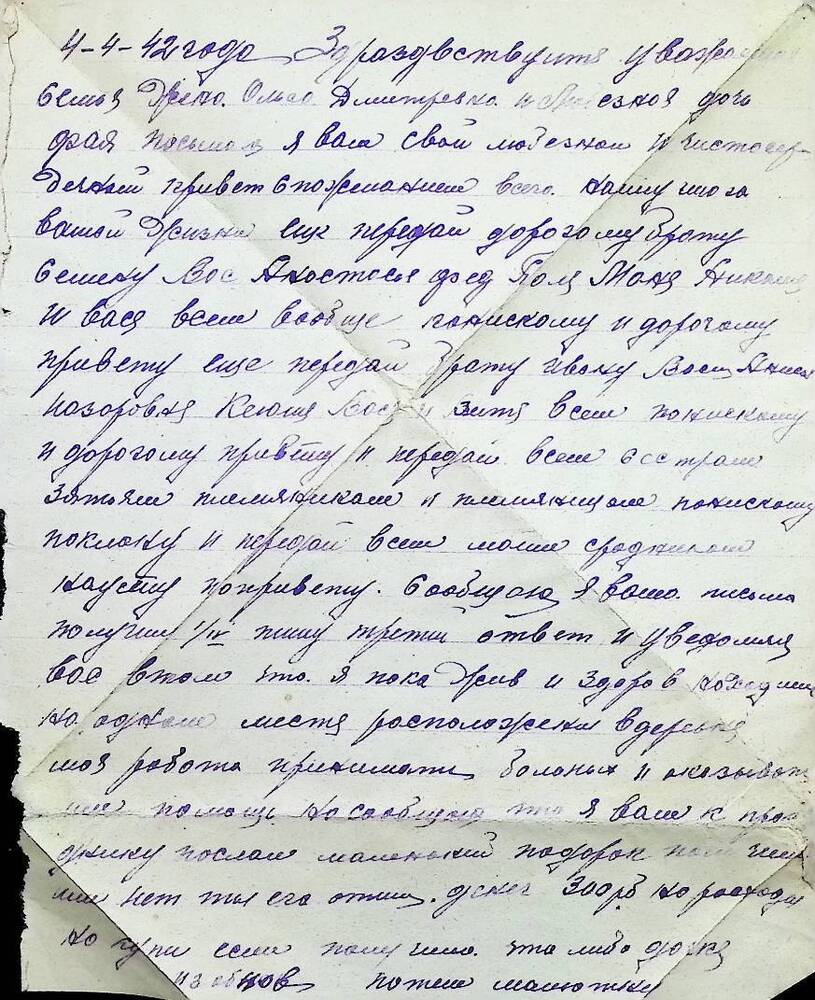 4-4-42 года Здраздвствуите уважаемая
семья Жена Ольга Дмитревна и любезная дочь
фая посылаю я вам свой любезной и чистосер-
дечный привет с пожеланием всего наилучшего
вашей жизни еще передай дорогому брату
Семену Вас Анастасья фед Поля Маня Николай
и вася всем вообще понискому и дорогому
привету еще передай брату ивану Васи Анисья
назаровня Ксюша Вася и Витя всем понискому
и дорогому привету и передай всем сестрам
зятьям племяникам и племяницам понискому
поклону и передай всем моим сродникам
наусту попривету. Сообщаю я ваше письмо
получил 1/IV пишу третий ответ и уведомляю
вас втом что я пока Жив и здоров находимся
на одном месте расположены вдеревня
моя работа принимать больных и оказывать
им помощь но сообщаю что я вам к праз
днику послал маленький подарок получили
или нет ты его отпиши. денег 300рб на расходы
но купи если получила что либо дочке
из обнов потом малютке